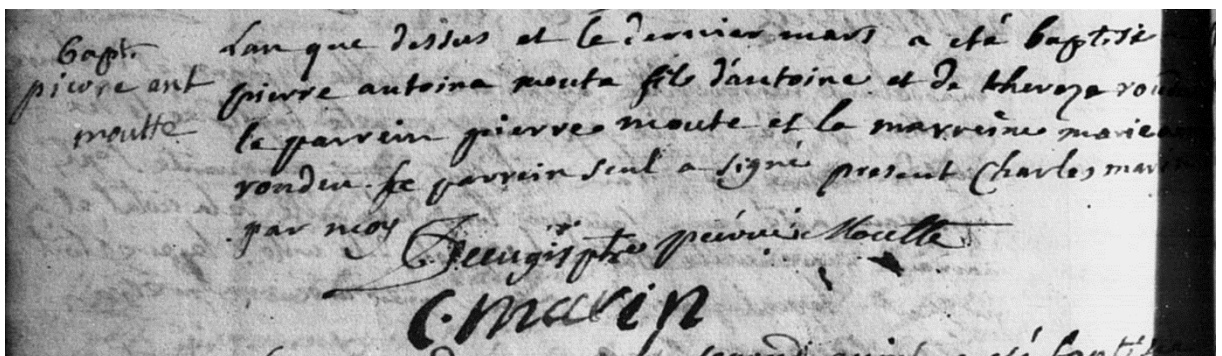 bapt.
pierre ant
moutte
Lan que dessus et le dernier mars a eté baptisé
pierre antoine moute fils d'antoine et de thereze
le parrein pierre moute et la marreine marie
rondeu le parrein seul a signé present Charles marin
par moy
ptre pierre Moutte
C. marin
a eté